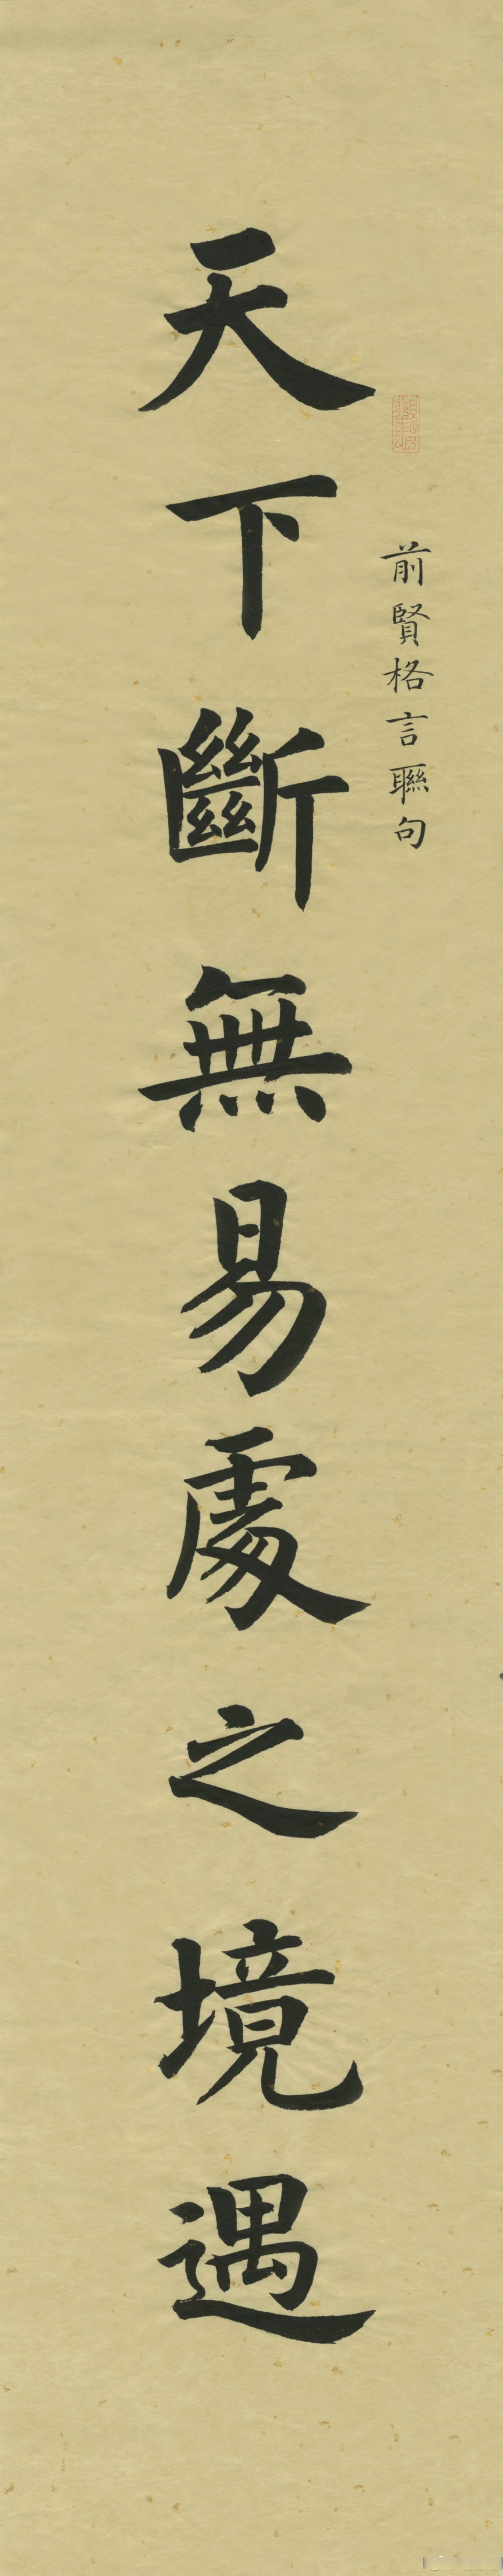 前賢格言聯句
天下斷無易處之境遇